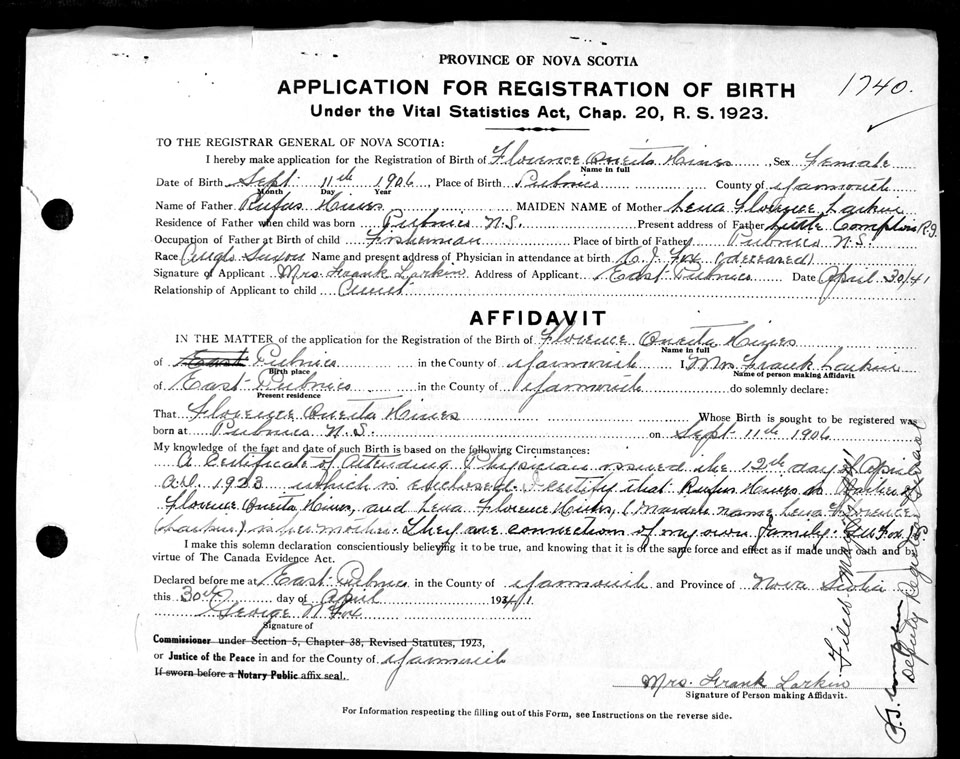 PROVINCE OF NOVA SCOTIA
APPLICATION FOR REGISTRATION OF BIRTH
1740.
Under the Vital Statistics Act, Chap. 20, R. S. 1923.
TO THE REGISTRAR GENERAL OF NOVA SCOTIA:
I hereby make application for the Registration of Birth of Florence Oneita Hines, Sex Female
Name in full
Date of Birth Sept 11th 1906, Place of Birth Pubnico County of Yarmouth
Month Day Year
Name of Father Rufus Hines MAIDEN NAME of Mother Lena Florence Larkin
Residence of Father when child was born Pubnico N.S. Present address of Father Little Compton R.I.
Occupation of Father at Birth of child Fisherman Place of birth of Father Pubnico N.S.
Race Anglo Saxon Name and present address of Physician in attendance at birth C. J. Fox (deceased)
Signature of Applicant Mrs. Frank Larkin Address of Applicant East Pubnico Date April 30/41
Relationship of Applicant to child Aunt
AFFIDAVIT
IN THE MATTER of the application for the Registration of the Birth of Florence Oneita Hines
Name in full
of East Pubnico in the County of Yarmouth I, Mrs Frank Larkin
Birth place Name of person making Affidavit
of East Pubnico in the County of Yarmouth do solemnly declare:
Present residence
That Florence Oneita Hines Whose Birth is sought to be registered was
born at Pubnico N.S. on Sept 11th 1906
My knowledge of the fact and date of such Birth is based on the following Circumstances:
A Certificate of Attending Physician issued the 12th day of April
A.D. 1923 which is enclosed. I certify that Rufus Hines is Father of
Florence Oneita Hines, and Lena Florence Hines, (Maiden name Lena Florence
Larkin) is her mother. They are connection of my own family.
I make this solemn declaration conscientiously believing it to be true, and knowing that it is of the same force and effect as if made under oath and by
virtue of The Canada Evidence Act.
Declared before me at East Pubnico in the County of Yarmouth and Province of Nova Scotia
this 30th day of April 1941
George N Fox
Signature of
Commissioner under Section 5, Chapter 38, Revised Statutes, 1923,
or Justice of the Peace in and for the County of Yarmouth
If sworn before a Notary Public affix seal.
Mrs. Frank Larkin
Signature of Person making Affidavit.
For Information respecting the filling out of this Form, see Instructions on the reverse side.
Filed May
Deputy Registrar General